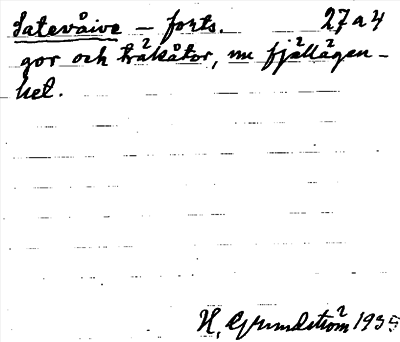 Satevåive – forts. 27a4
gor och träkåtor, nu fjällägen-
het.
H. Grundström 1935